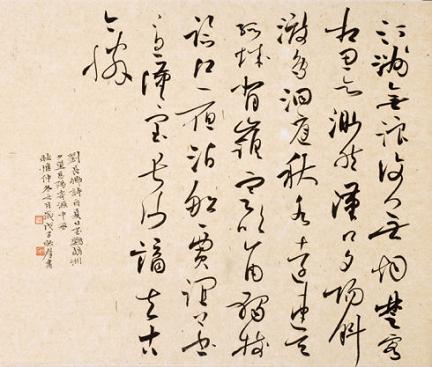 汀洲無浪復無烟楚客
相思益渺然漢口夕陽斜
渡鳥洞庭秋水遠連天
孤城背嶺寒吹角獨戍
臨江夜泊船賈誼上書
憂漢室長沙謫去古
今憐
劉長卿詩自夏口至鸚鵡洲
夕望岳陽寄源中丞